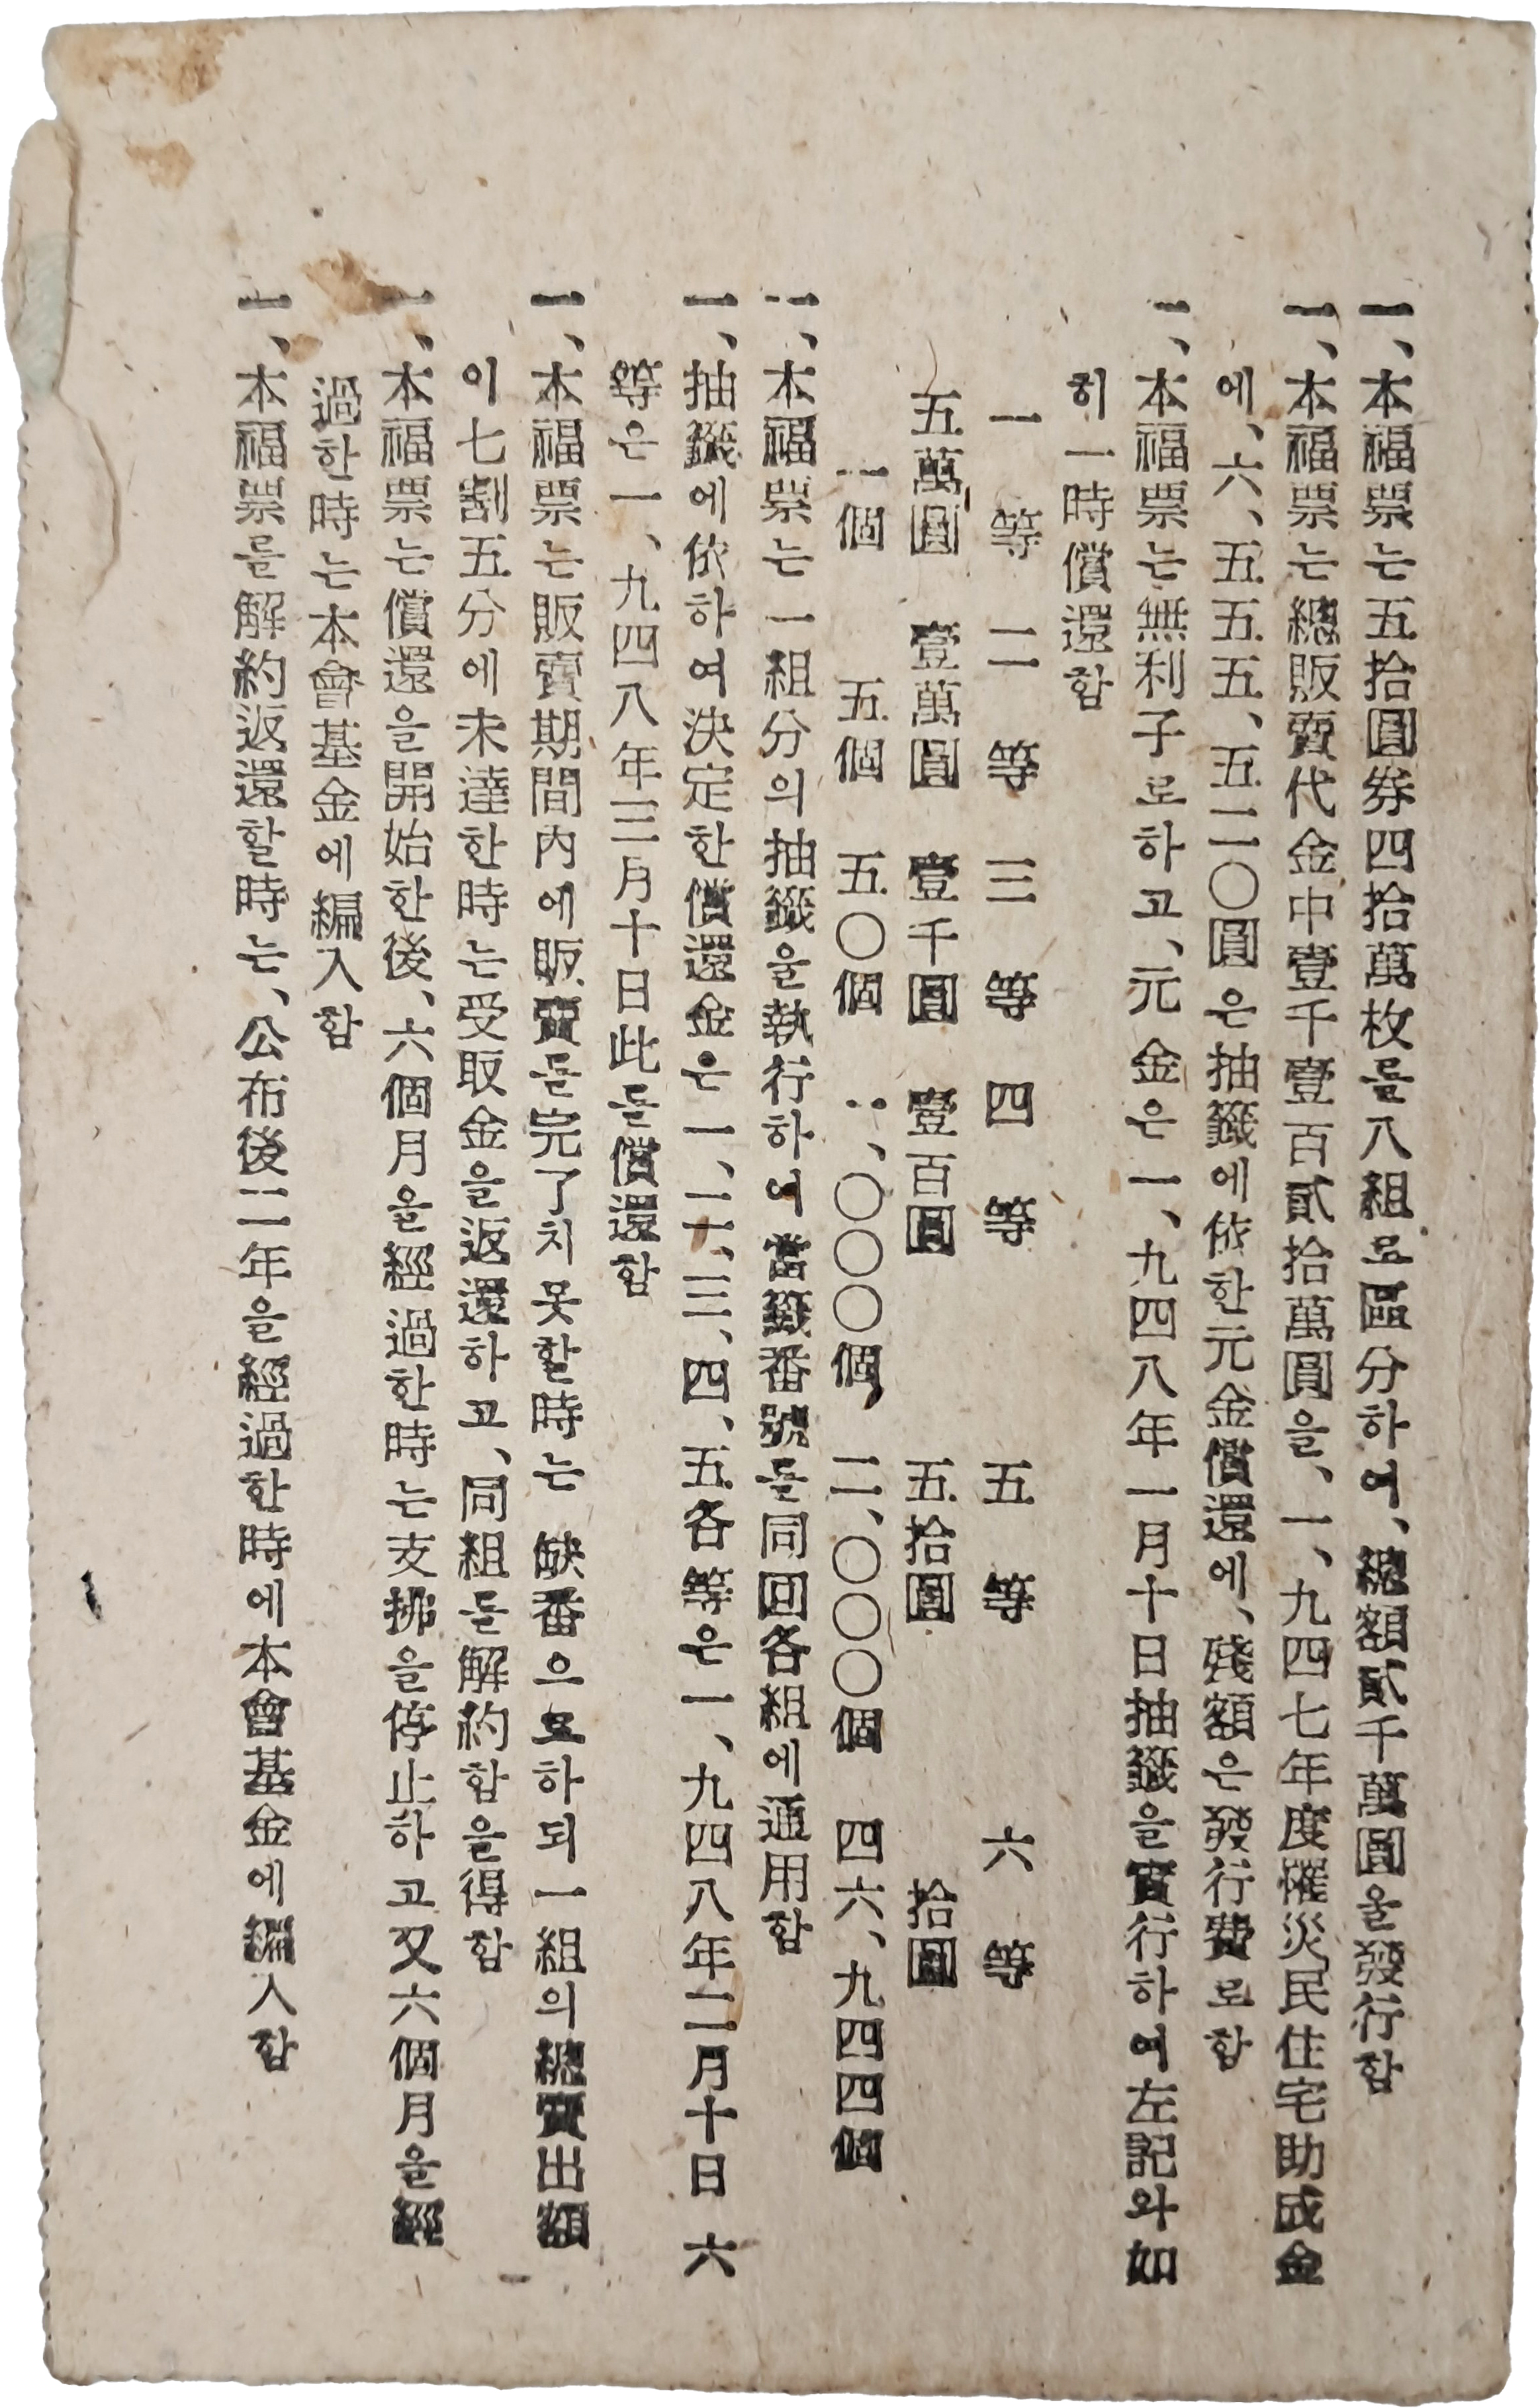 一、本福票는五拾圓券四拾萬枚를八組로區分하여、總額貳千萬圓을發行함
一、本福票는總販賣代金中壹千壹百貳拾萬圓을、一、九四七年度罹災民住宅助成金
에、六、五五五、五二〇圓은抽籤에依한元金償還에、殘額은發行費로함
一、本福票는無利子로하고、元金은一、九四八年一月十日抽籤을實行하여左記와如
히一時償還함
一等 二等 三等 四等 五等 六等
五萬圓 壹萬圓 壹千圓 壹百圓 五拾圓 拾圓
一個 五個 五〇個 一、〇〇〇個 二、〇〇〇個 四六、九四四個
一、本福票는一組分의抽籤을執行하여當籤番號를同回各組에通用함
一、抽籤에依하여決定한償還金은一、二、三、四、五各等은一、九四八年二月十日 六
等은一、九四八年三月十日此를償還함
一、本福票는販賣期間內에販賣를完了치못할時는 缺番으로하되一組의總賣出額
이七割五分에未達한時는受取金을返還하고、同組를解約함을得함
一、本福票는償還을開始한後、六個月을經過한時는支拂을停止하고又六個月을經
過한時는本會基金에編入함
一、本福票를解約返還할時는、公布後二年을經過한時에本會基金에編入함